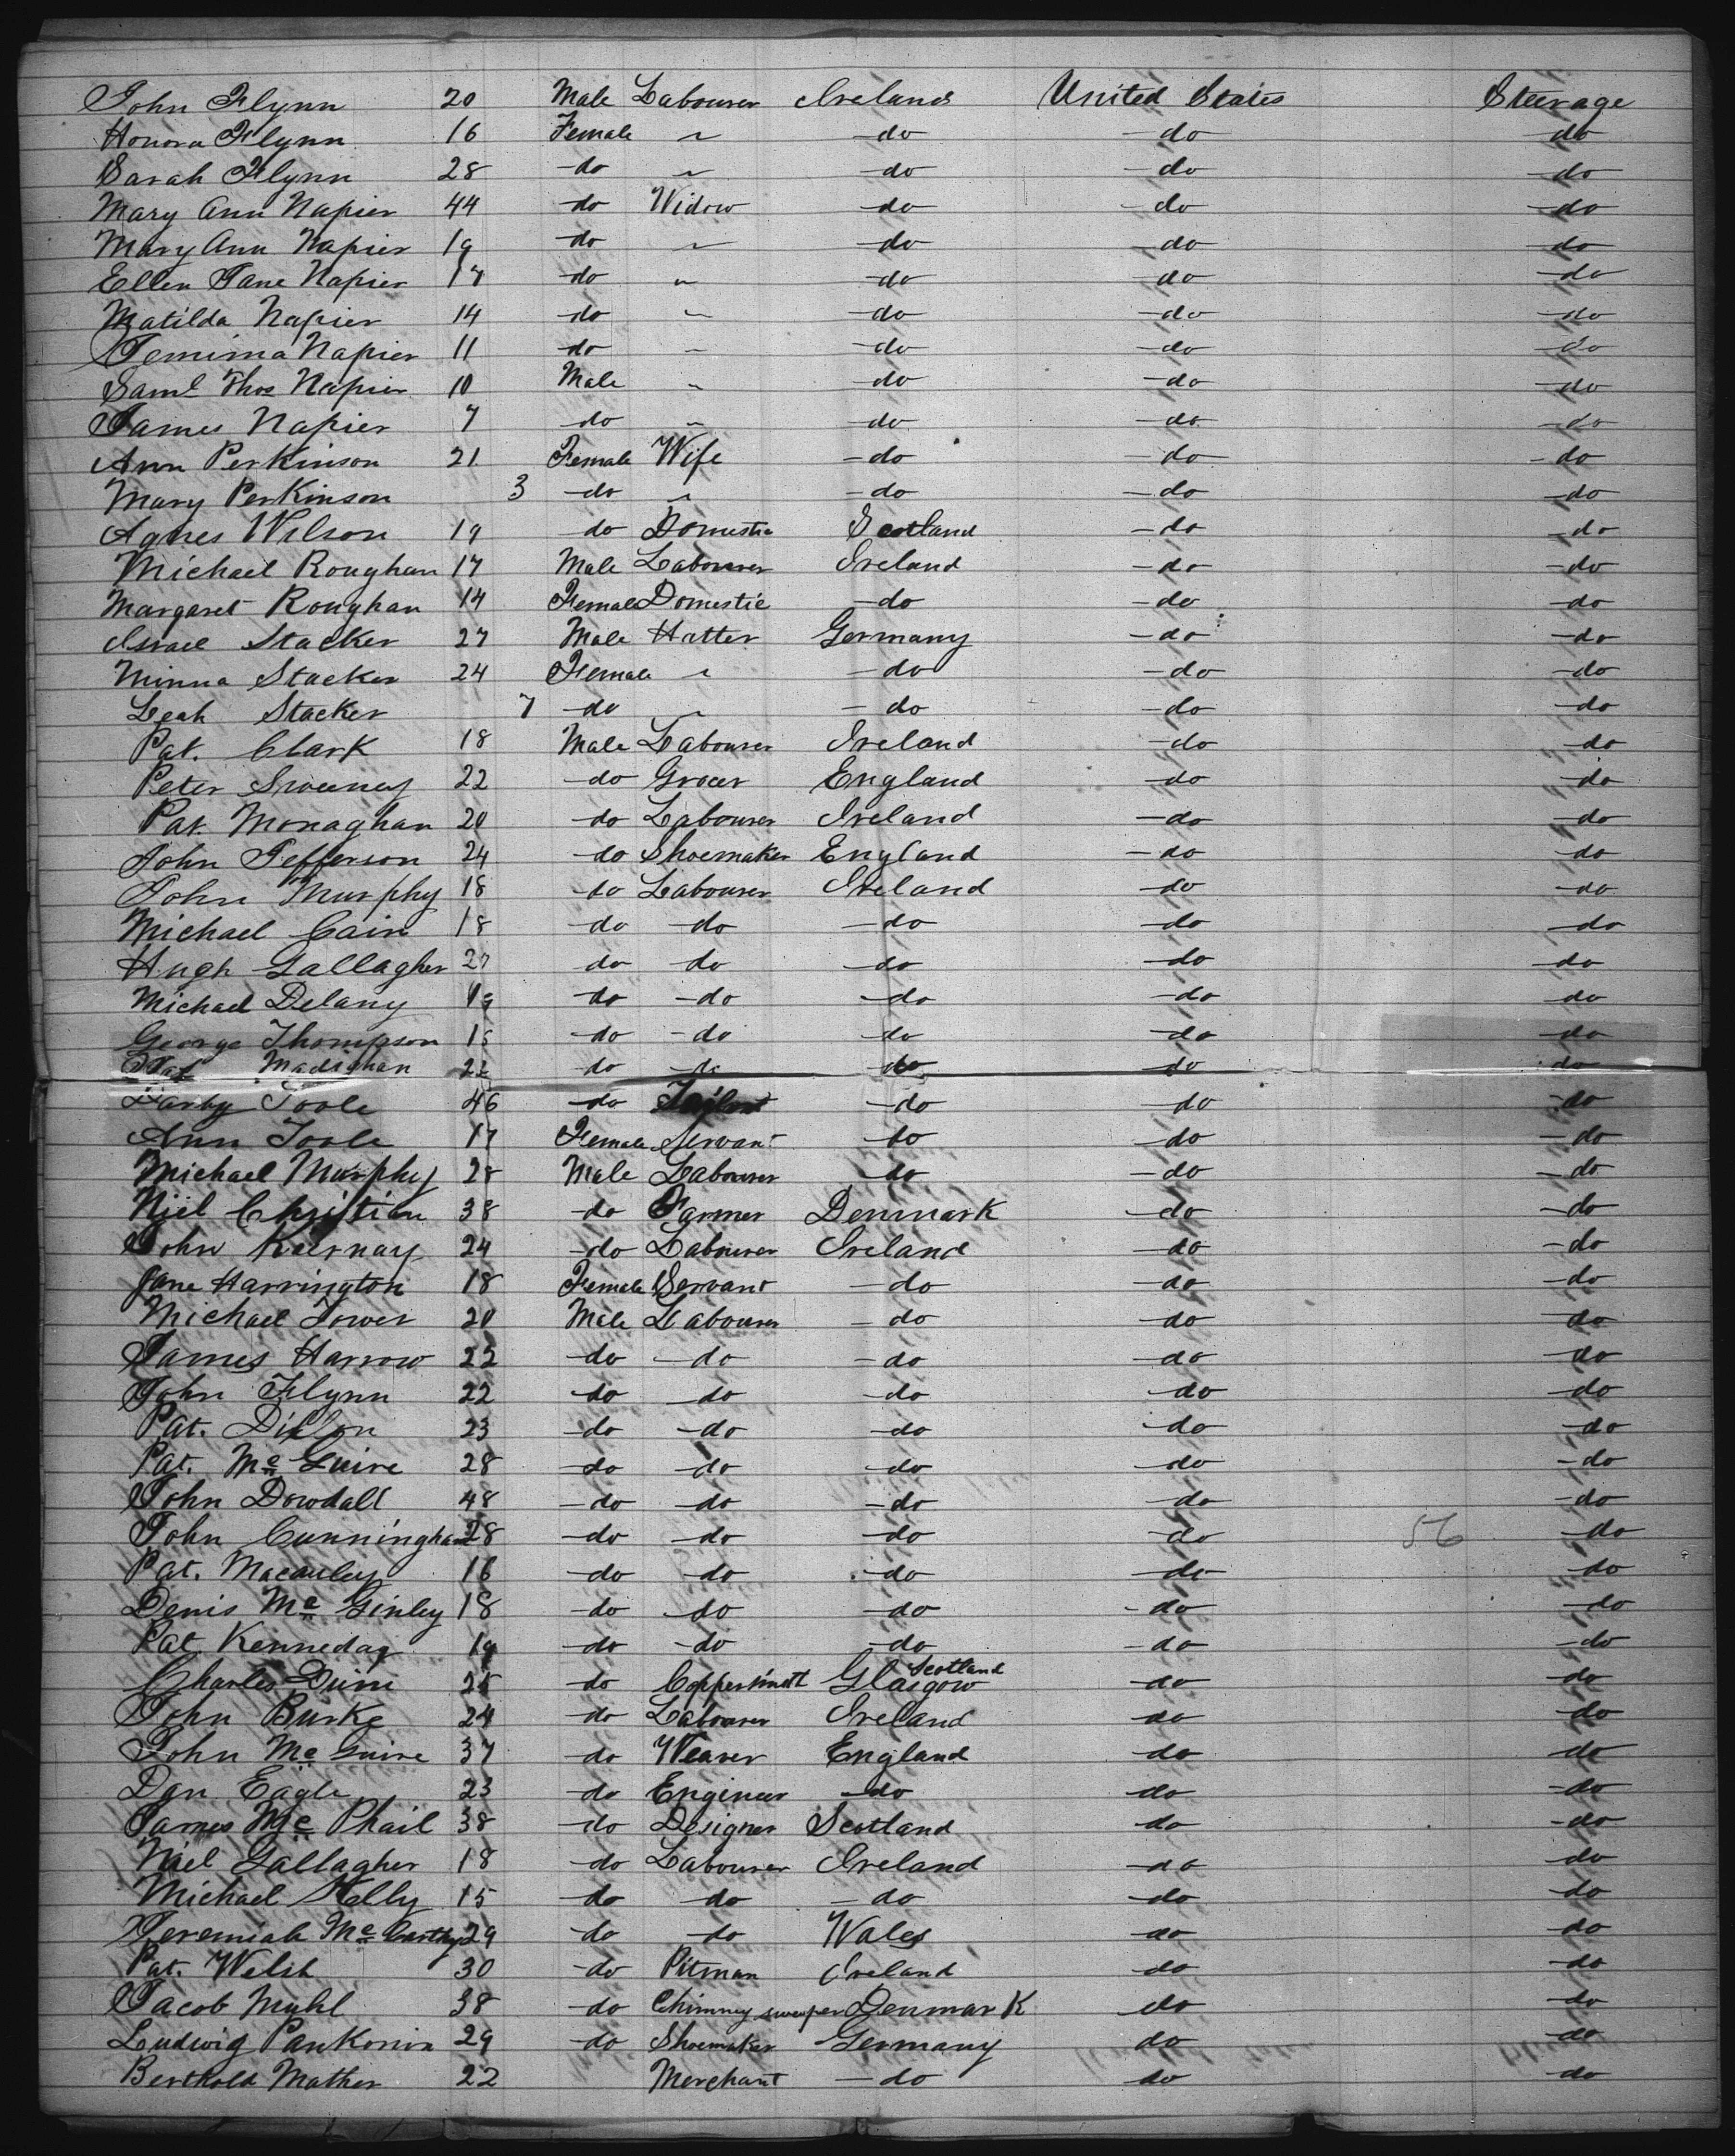 John Flynn 20 Male Labourer Ireland United States Steerage
Honora Flynn 16 Female " do do do
Sarah Flynn 28 do " do do do
Mary Ann Napier 44 do Widow do do do
Mary Ann Napier 19 do " do do do
Ellen Jane Napier 17 do " do do do
Matilda Napier 14 do " do do do
Jemima Napier 11 do " do do do
Saml Thos Napier 10 Male " do do do
James Napier 7 do " do do do
Ann Perkinson 21 Female Wife do do do
Mary Perkinson 3 do " do do do
Agnes Wilson 19 do Domestic Scotland do do
Michael Roughan 17 Male Labourer Ireland do do
Margaret Roughan 14 Female Domestic do do do
Israel Stacker 27 Male Hatter Germany do do
Minna Stacker 24 Female " do do do
Leah Stacker 7 do " do do do
Pat. Clark 18 Male Labourer Ireland do do
Peter Sweeney 22 do Grocer England do do
Pat. Monaghan 20 do Labourer Ireland do do
John Jefferson 24 do Shoemaker England do do
John Murphy 18 do Labourer Ireland do do
Michael Cain 18 do do do do do
Hugh Gallagher 27 do do do do do
Michael Delany 19 do do do do do
George Thompson 18 do do do do do
Pat Madighan 22 do do do do do
Darby Toole 46 do Tailor do do do
Ann Toole 17 Female Servant do do do
Michael Murphy 28 Male Labourer do do do
Niel Christian 38 do Farmer Denmark do do
John Kiernay 24 do Labourer Ireland do do
Jane Harrington 18 Female Servant do do do
Michael Tower 20 Male Labourer do do do
James Harrow 22 do do do do do
John Flynn 22 do do do do do
Pat. Dillon 23 do do do do do
Pat. McGuire 28 do do do do do
John Dowdall 48 do do do do do
John Cunningham 28 do do do do 56 do
Pat. Macauley 16 do do do do do
Denis McGinley 18 do do do do do
Pat Kenneday 19 do do do do do
Charles 25 do Coppersmith Glasgow Scotland do do
John Burke 24 do Labourer Ireland do do
John McGuire 37 do Weaver England do do
Dan Eagle 23 do Engineer do do do
James McPhail 38 do Designer Scotland do do
Niel Gallagher 18 do Labourer Ireland do do
Michael Kelly 15 do do do do do
Jeremiah McCarthy 29 do do Wales do do
Pat. Welsh 30 do Pitman Ireland do do
Jacob Muhl 38 do Chimney sweeper Denmark do do
Ludwig Pankonin 29 do Shoemaker Germany do do
Berthold Mather 22 Merchant do do do